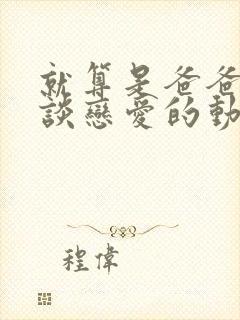 就算是爸爸
談戀愛的動
程偉